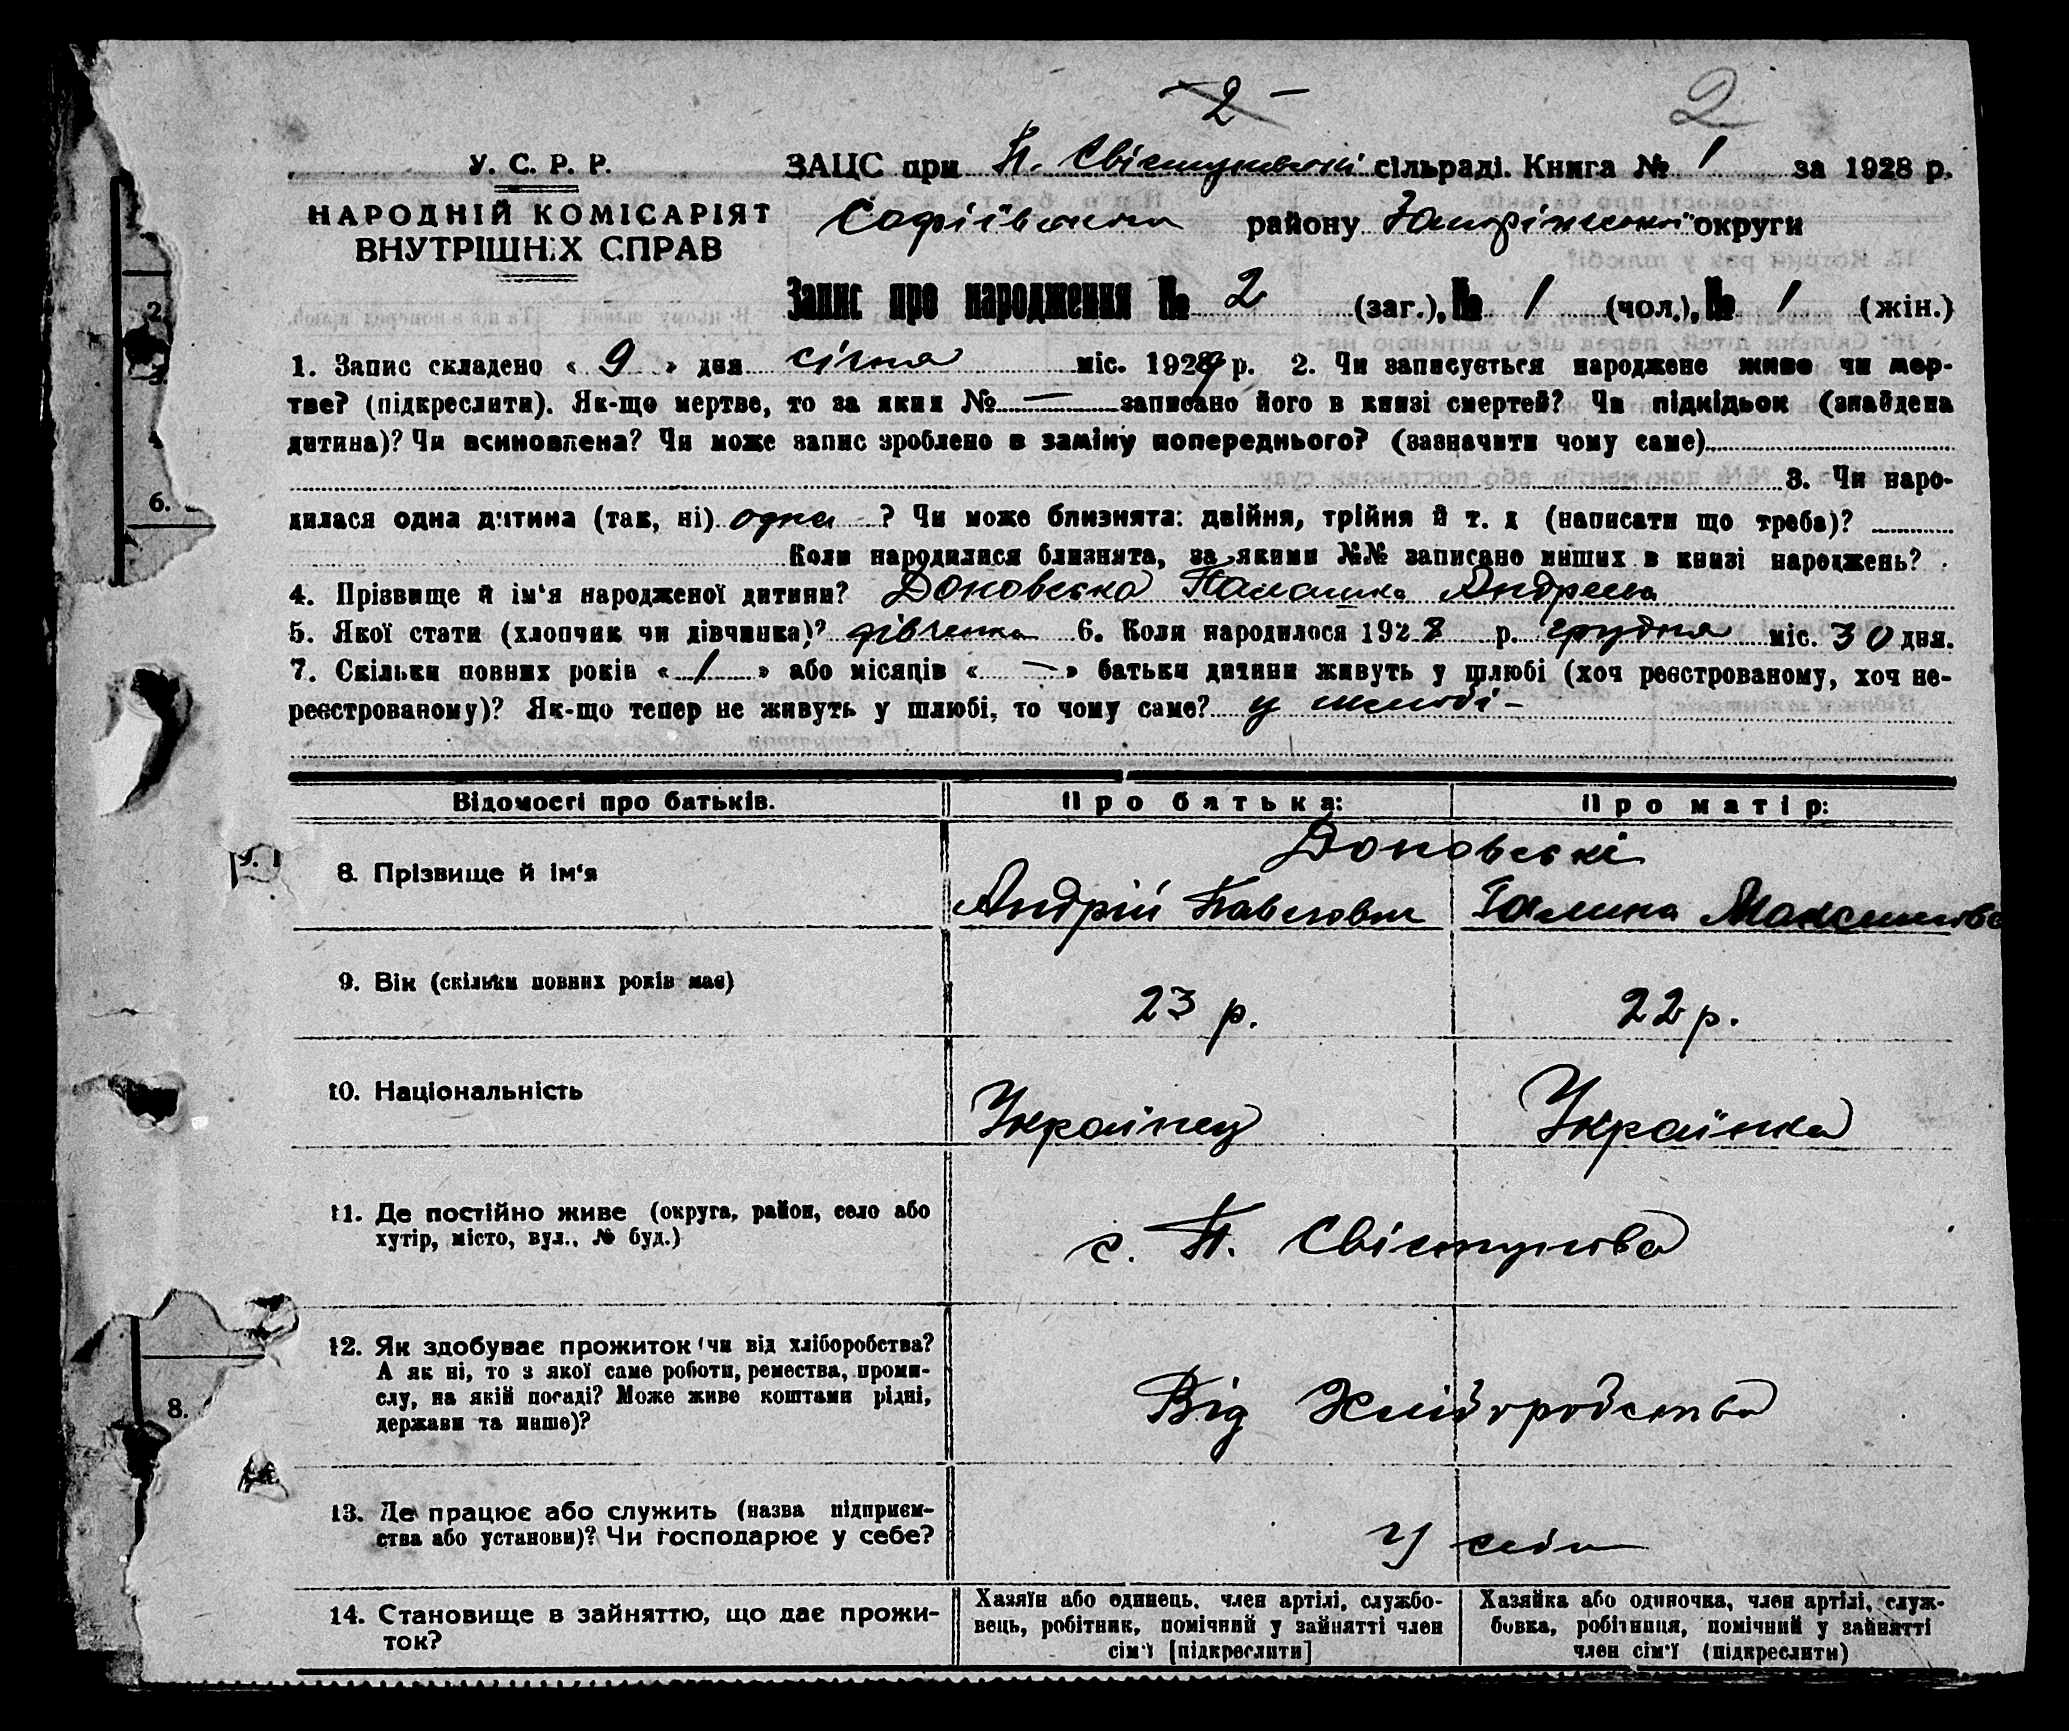 2
– 2 –
У. С. Р. Р.
НАРОДНІЙ КОМІСАРІЯТ
ВНУТРІШНІХ СПРАВ
ЗАЦС при П. Свістунівській сільраді. Книга № 1 за 1928 р.
Софіївського району Запоріжської округи
Запис про народження № 2 (заг.), № 1 (чол.), № 1 (жін.)
1. Запис складено « 9 » дня січня міс. 1929 р. 2. Чи записується народжене живе чи мер-
тве? (підкреслити). Як-що мертве, то за яким № — записано його в книзі смертей? Чи підкідьок (знайдена
дитина)? Чи всиновлена? Чи може запис зроблено в заміну попереднього? (зазначити чому саме)
3. Чи наро-
дилася одна дитина (так, ні) одна ? Чи може близнята: двійня, трійня й т. д (написати що треба)?
Коли народилися близнята, за якими №№ записано инших в книзі народжень?
4. Прізвище й ім'я народженої дитини? Доновська Палашка Андреева
5. Якої стати (хлопчик чи дівчинка)? дівчинка 6. Коли народилося 1928 р. грудня міс. 30 дня.
7. Скільки повних років « 1 » або місяців « — » батьки дитини живуть у шлюбі (хоч реєстрованому, хоч не-
реєстрованому)? Як-що тепер не живуть у шлюбі, то чому саме? у шлюбі –
Відомості про батьків. Про батька: Про матір:
Доновські
8. Прізвище й ім'я Андрій Павлович Галина Максимовна
9. Вік (скільки повних років має) 23 р. 22 р.
10. Національність Українец Українка
11. Де постійно живе (округа, район, село або
хутір, місто, вул., № буд.) с. П. Свістунова
12. Як здобуває прожиток чи від хліборобства?
А як ні, то з якої саме роботи, ремества, проми-
слу, на якій посаді? Може живе коштами рідні,
держави та инше)?
Від Хліборобства
13. Де працює або служить (назва підприєм-
ства або установи)? Чи господарює у себе?
У себе
14. Становище в зайняттю, що дає прожи-
ток?
Хазяїн або одинець, член артілі, службо-
вець, робітник, помічний у зайнятті член
сім'ї [підкреслити]
Хазяйка або одиночка, член артілі, служ-
бовка, робітниця, помічний у зайнятті
член сім'ї (підкреслити)
2
6.
9.
8.